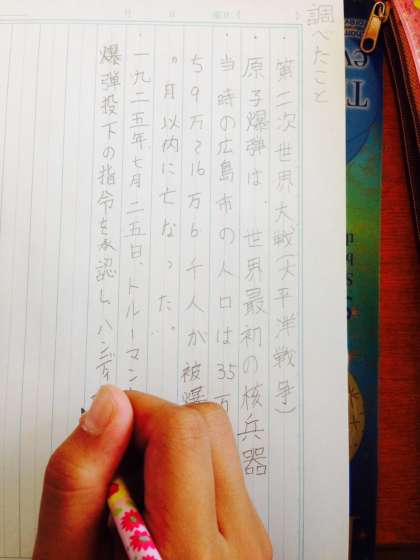 調べたこと
・第二次世界大戦(太平洋戦争)
・原子爆弾は、世界最初の核兵器
・当時の広島市の人口は35万
ち9万〜16万6千人が被爆
月以内に亡なった。
・一九二五年七月二五日、トルーマン
爆弾投下の指令を承認し、ハンディ
月 日 曜日( )